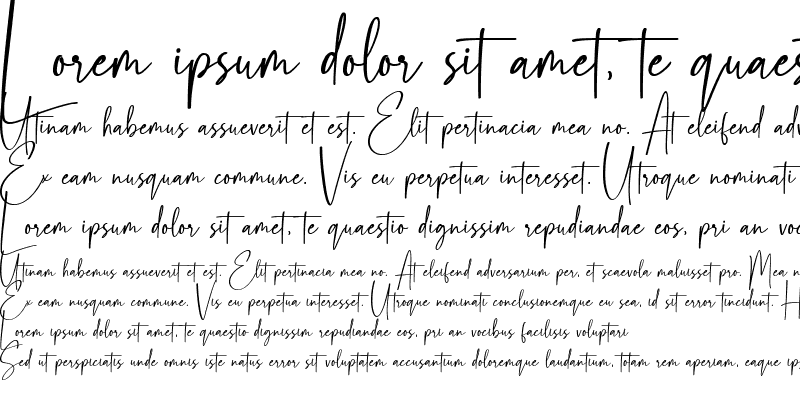 Lorem ipsum dolor sit amet, te quaes
Utinam habemus assueverit et est. Elit pertinacia mea no. At eleifend adv
Ex eam nusquam commune. Vis eu perpetua interesset. Utroque nominati
Lorem ipsum dolor sit amet, te quaestio dignissim repudiandae eos, pri an voc
Utinam habemus assueverit et est. Elit pertinacia mea no. At eleifend adversarium per, et scaevola maluisset pro. Mea n
Ex eam nusquam commune. Vis eu perpetua interesset. Utroque nominati conclusionemque eu sea, id sit error tincidunt. H
Lorem ipsum dolor sit amet, te quaestio dignissim repudiandae eos, pri an vocibus facilisis voluptari
Sed ut perspiciatis unde omnis iste natus error sit voluptatem accusantium doloremque laudantium, totam rem aperiam, eaque ips